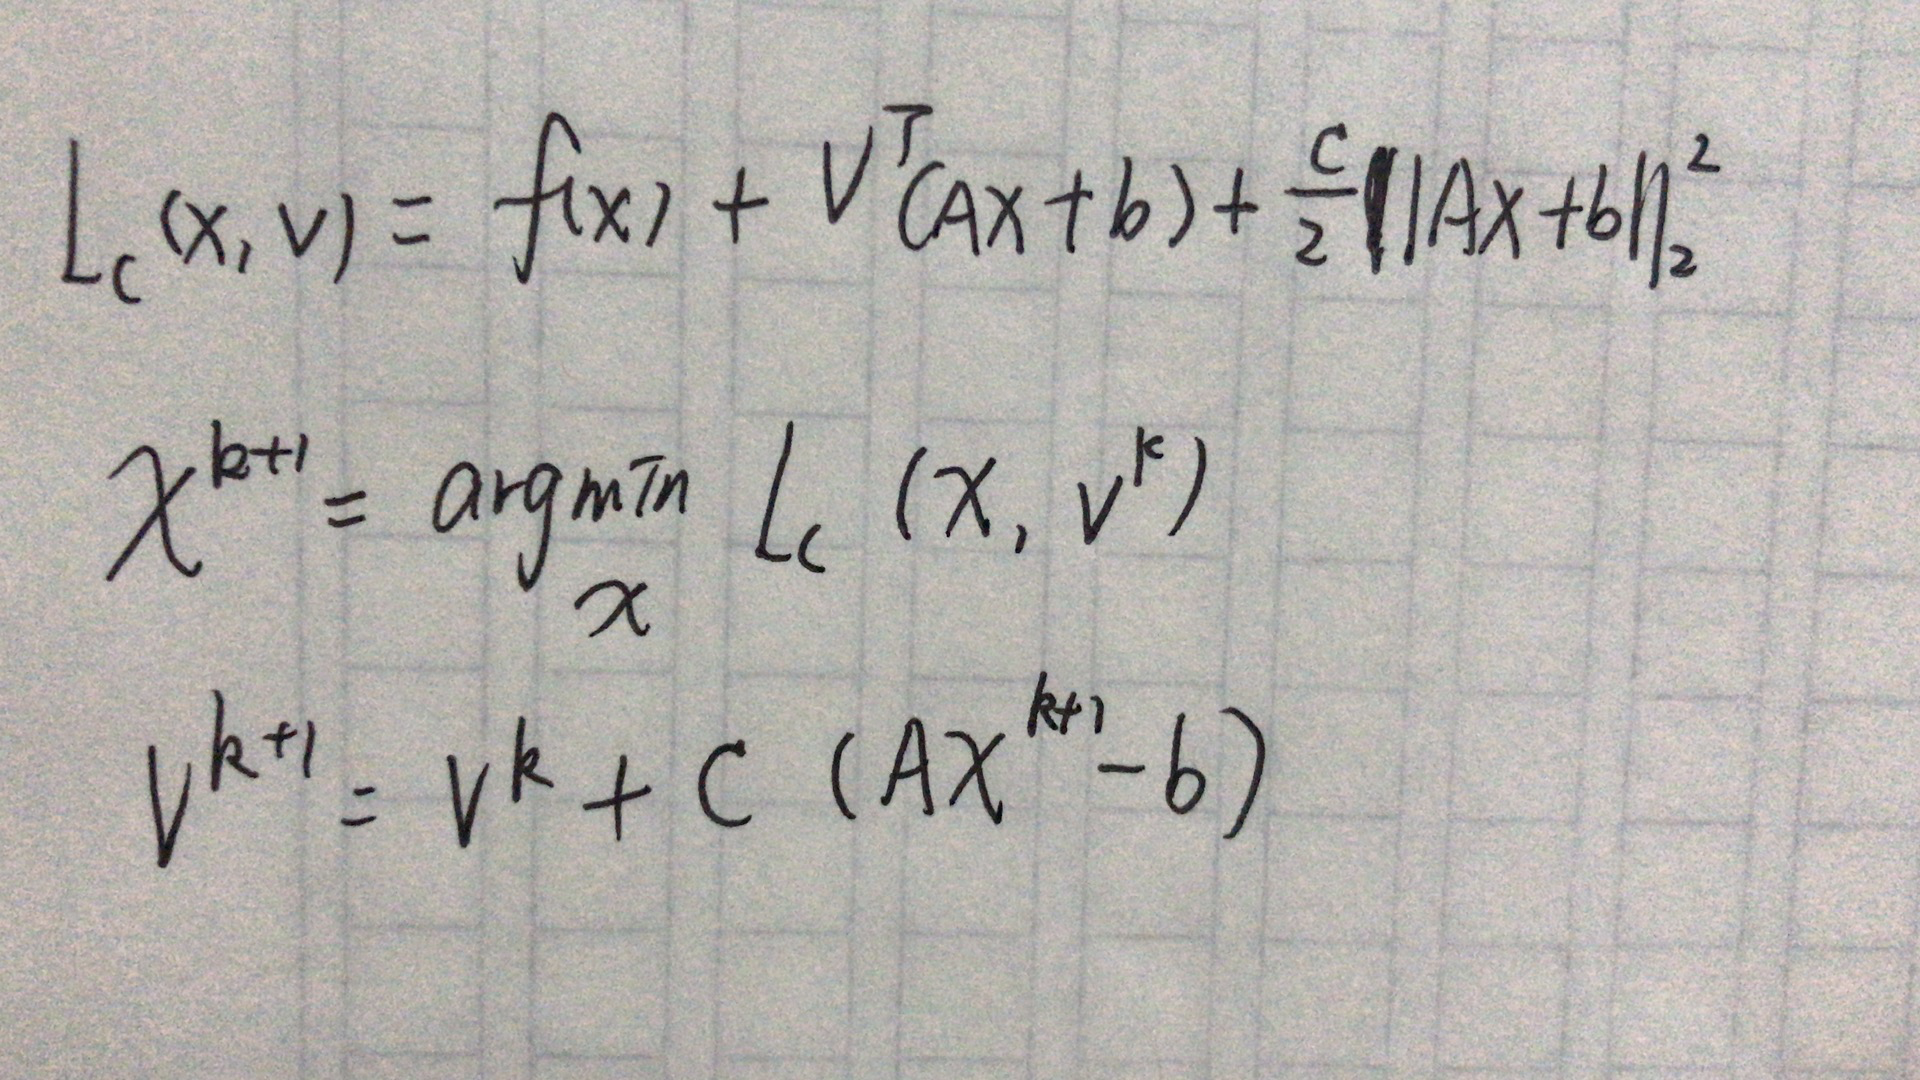 L_c(x, v) = f(x) + v^T(Ax + b) + \frac{c}{2} ||Ax + b||_2^2
x^{k+1} = argmin_x L_c (x, v^k)
v^{k+1} = v^k + c (Ax^{k+1} - b)